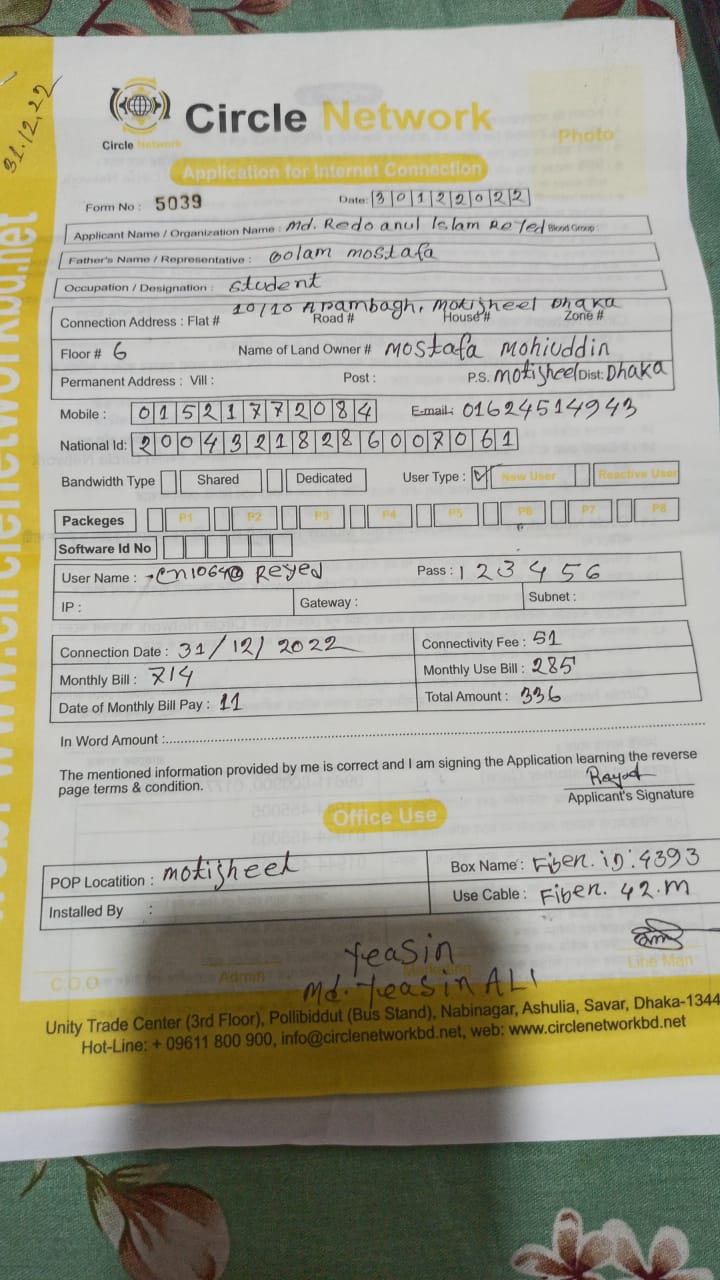 31.12.22
Circle Network
Circle Network
Photo
Application for Internet Connection
Form No : 5039 Date: 30122022
Applicant Name / Organization Name : Md. Redoanul Islam Reyed Blood Group :
Father's Name / Representative : Golam mostafa
Occupation / Designation : Student
10/10 Arambagh, Motijheel Dhaka
Connection Address : Flat # Road # House # Zone #
Floor # 6 Name of Land Owner # Mostafa Mohiuddin
Permanent Address : Vill : Post : P.S. Motijheel Dist: Dhaka
Mobile : 01521772084 E-mail : 01624514943
National Id: 20043218286007061
Bandwidth Type Shared Dedicated User Type : ✓ New User Reactive User
Packeges P1 P2 P3 P4 P5 P6 P7 P8
Software Id No
User Name : Reyed Pass : 123456
IP : Gateway : Subnet :
Connection Date : 31/12/2022 Connectivity Fee : 51
Monthly Bill : 714 Monthly Use Bill : 285
Date of Monthly Bill Pay : 11 Total Amount : 336
In Word Amount :
The mentioned information provided by me is correct and I am signing the Application learning the reverse
page terms & condition.
Rayed
Applicant's Signature
Office Use
POP Locatition : motijheel Box Name : Fiben. iD: 4393
Installed By : Use Cable : Fiben. 42.m
Yeasin
Md. Yeasin ALI
C.O.O Admin Marketing Line Man
Unity Trade Center (3rd Floor), Pollibiddut (Bus Stand), Nabinagar, Ashulia, Savar, Dhaka-1344
Hot-Line: + 09611 800 900, info@circlenetworkbd.net, web: www.circlenetworkbd.net
www.circlenetworkbd.net